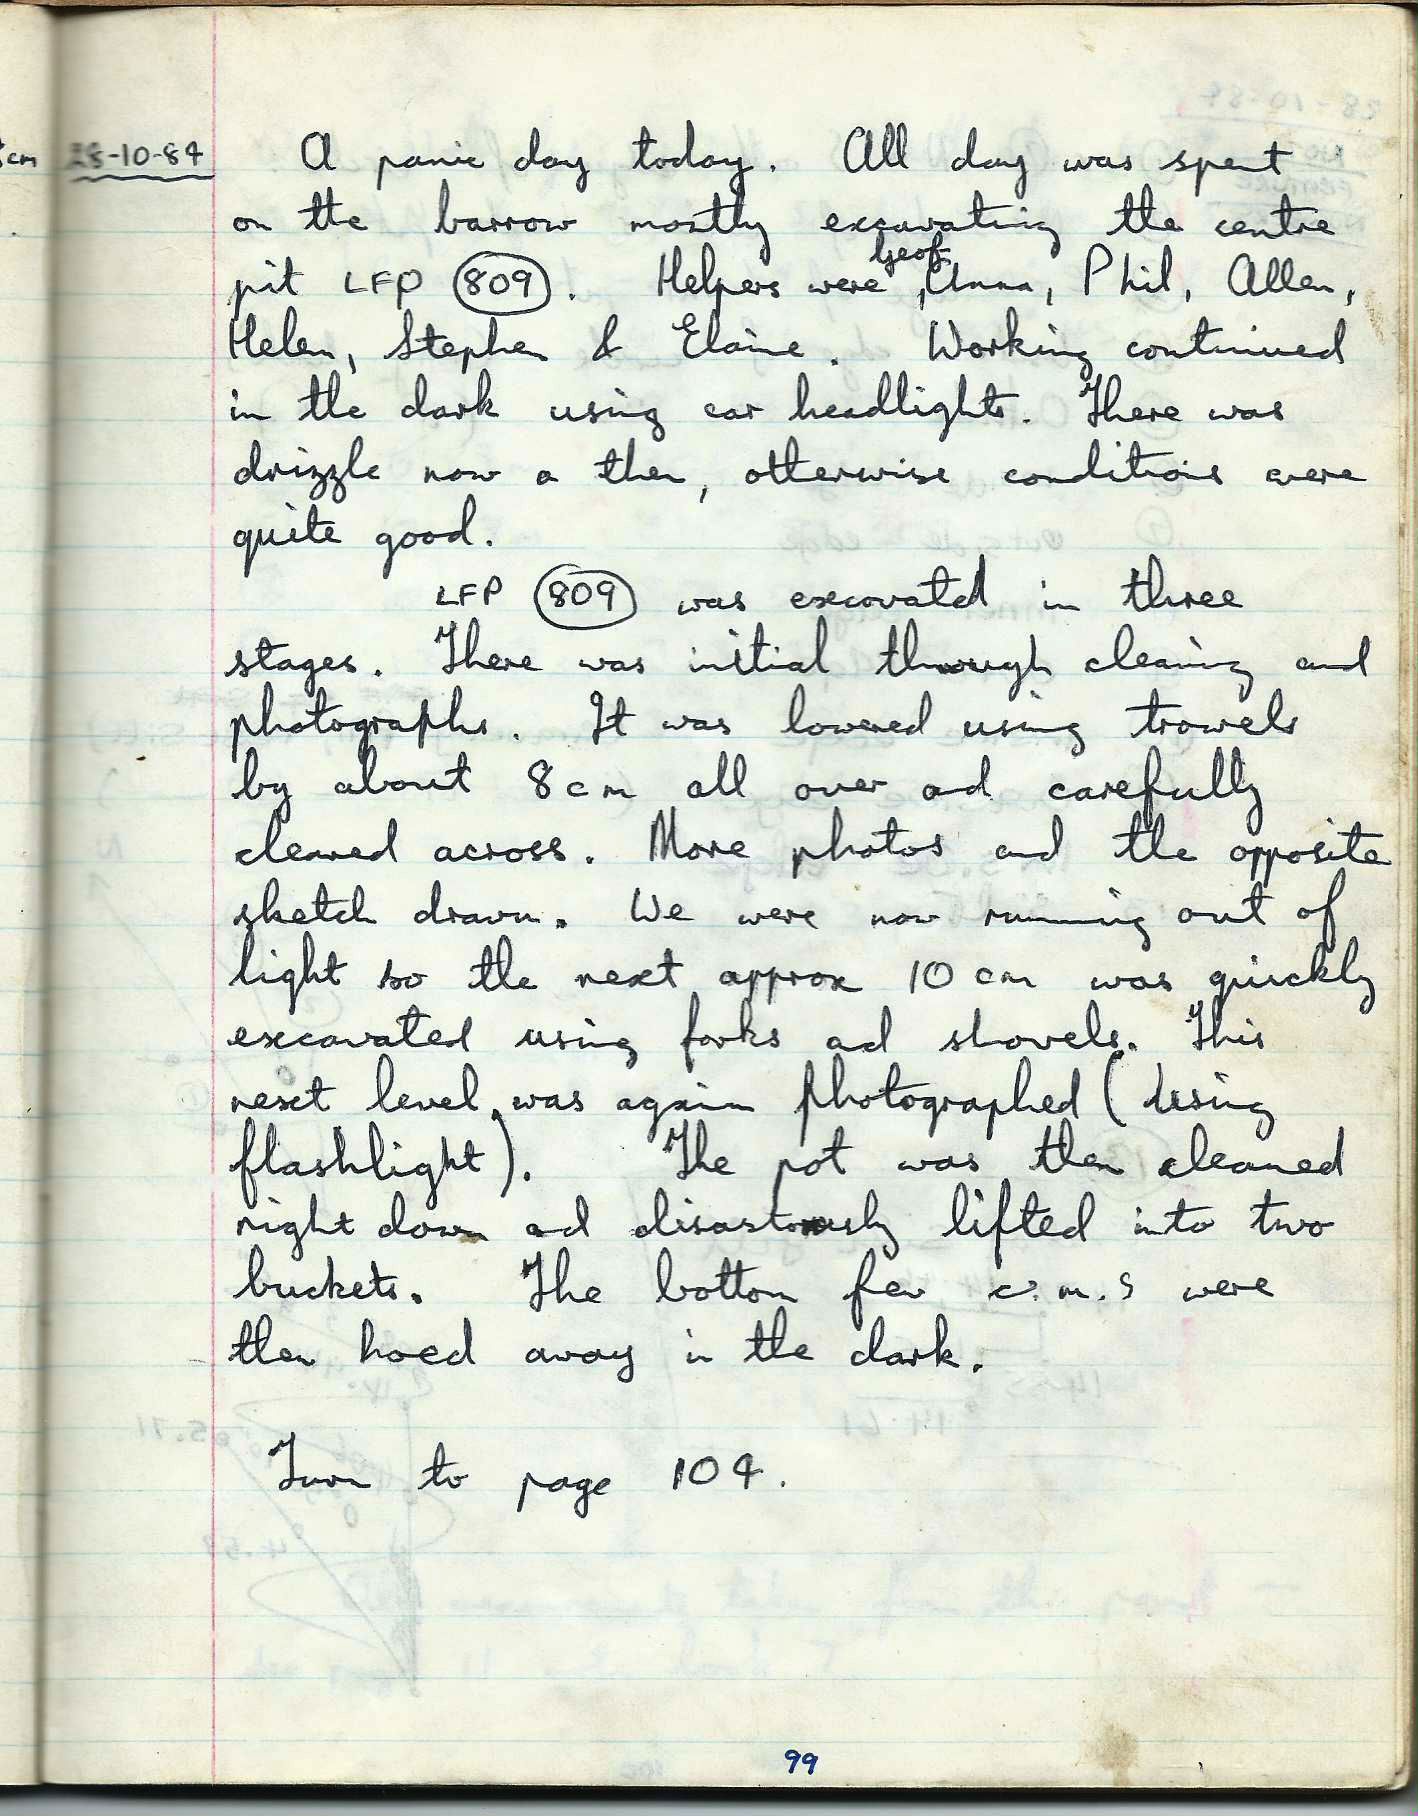 28-10-84 A panic day today. All day was spent
on the barrow mostly excavating the centre
pit LFP 809. Helpers were Geof, Anna, Phil, Allen,
Helen, Stephen & Elaine. Working continued
in the dark using car headlights. There was
drizzle now a then, otherwise conditions were
quite good.
LFP 809 was excavated in three
stages. There was initial through cleaning and
photographs. It was lowered using trowels
by about 8cm all over ad carefully
cleaned across. More photos and the opposite
sketch drawn. We were now running out of
light so the next approx 10 cm was quickly
excavated using forks ad shovels. This
next level, was again photographed (using
flashlight). The pot was then cleaned
right down ad disastorously lifted into two
buckets. The bottom few c.m.s were
then hoed away in the dark.
Turn to page 104.
99